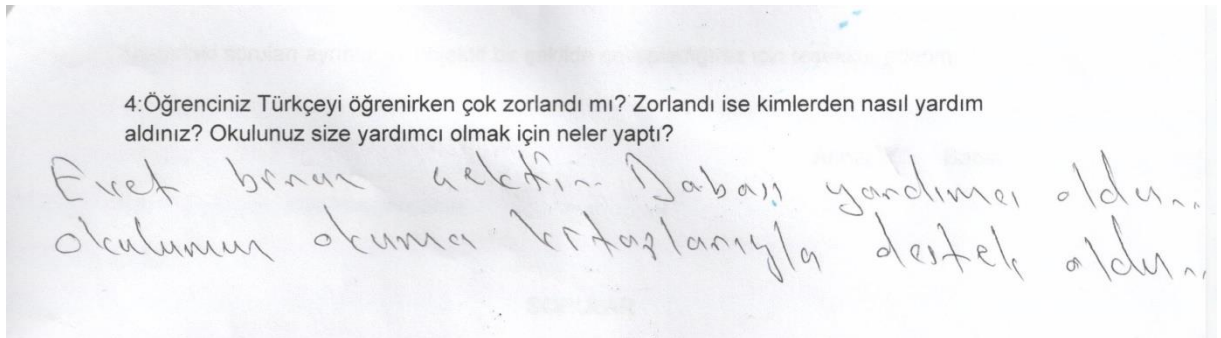 4:Öğrenciniz Türkçeyi öğrenirken çok zorlandı mı? Zorlandı ise kimlerden nasıl yardım
aldınız? Okulunuz size yardımcı olmak için neler yaptı?
Evet biraz Babası yardımcı oldu..
okulumuz okuma kitaplarıyla destek oldu..